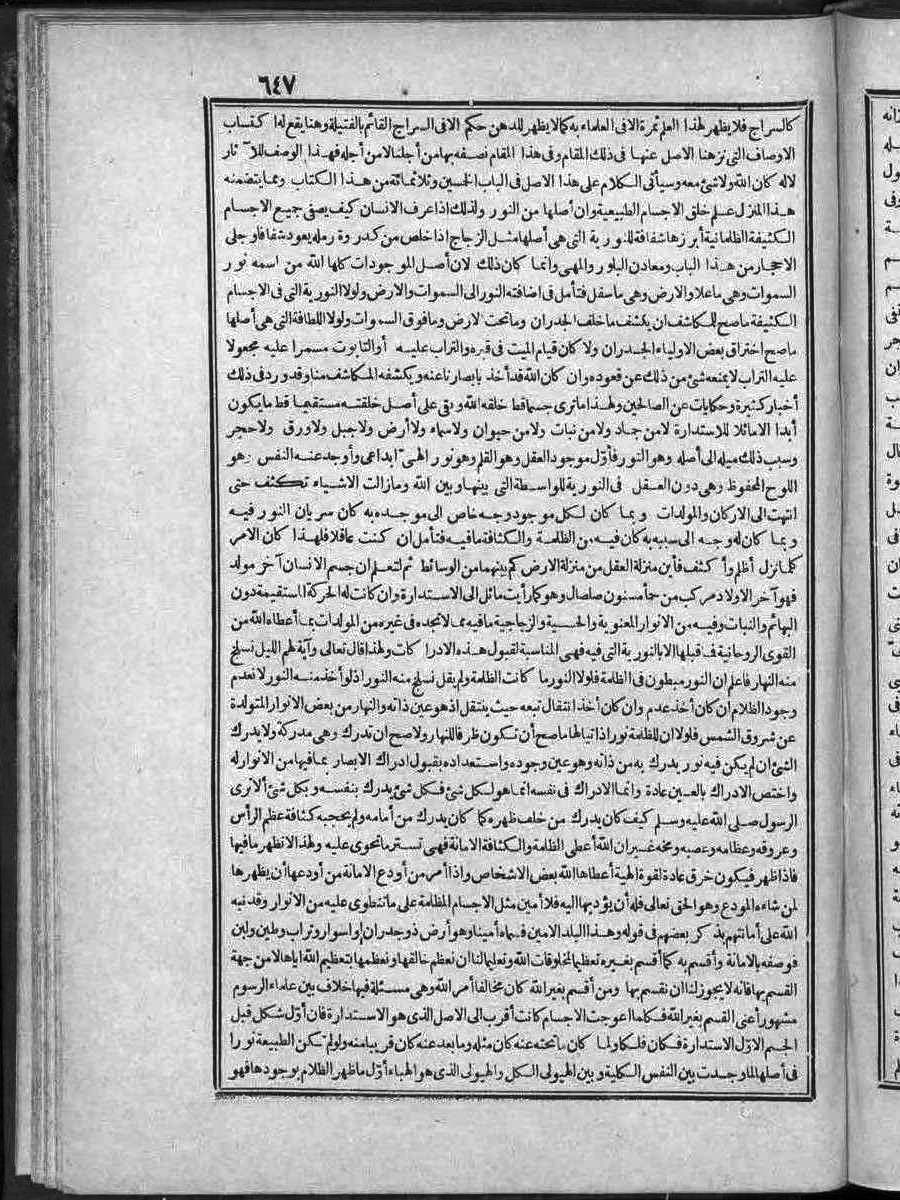 ٦٤٧
كالسراج فلا يظهر لهذا العلم ثمرة الا فى العلماء به كما لا يظهر للدهن حكم الا فى السراج القائم بالفتيلة وهنا يقع له اكتساب
الاوصاف التى نزهنا الاصل عنها فى ذلك المقام وفى هذا المقام نصفه بها من أجلنا لا من أجله فهذا الوصف للآثار
لاله كان الله ولا شئ معه وسيأتى الكلام على هذا الاصل فى الباب الخمسين وثلاثمائة من هذا الكتاب ومما يتضمنه
هذا المنزل علم خلق الاجسام الطبيعية وان أصلها من النور ولذلك اذا عرف الانسان كيف يصفى جميع الاجسام
الكثيفة الظلمانية أبرزها شفافة للنورية التى هى أصلها مثل الزجاج اذا خلص من كدروة رمله يعود شفافا وجلى
الاحجار من هذا الباب ومعادن البلور والمهى وانما كان ذلك لان أصل الموجودات كلها الله من اسمه نور
السموات وهى ما علا والارض وهى ما سفل فتأمل فى اضافته النور الى السموات والارض ولولا النورية التى فى الاجسام
الكثيفة ما صح للمكاشف ان يكشف ما خلف الجدران وما تحت الارض وما فوق السموات ولولا اللطافة التى هى أصلها
ما صح اختراق بعض الاولياء الجدران ولا كان قيام الميت فى قبره والتراب عليه أو التابوت مسمرا عليه مجعولا
عليه التراب لا يمنعه شئ من ذلك عن قعوده وان كان الله قد أخذ بابصارنا عنه ويكشفه المكاشف منا وقد ورد فى ذلك
أخبار كثيرة وحكايات عن الصالحين ولهذا ما ترى جسما قط خلقه الله وبقى على أصل خلقته مستقيما قط ما يكون
أبدا الا مائلا للاستدارة لا من جماد ولا من نبات ولا من حيوان ولا سماء ولا أرض ولا جبل ولا ورق ولا حجر
وسبب ذلك ميله الى أصله وهو النور فأول موجود العقل وهو القلم وهو نور الهىّ ابداعى وأوجد عنه النفس وهو
اللوح المحفوظ وهى دون العقل فى النورية للواسطة التى بينها وبين الله وما زالت الاشياء تكثف حتى
انتهت الى الاركان والمولدات وبما كان لكل موجود وجه خاص الى موجده به كان سريان النور فيه
وبما كان له وجه الى سببه به كان فيه من الظلمة والكثافة ما فيه فتأمل ان كنت عاقلا فلهذا كان الامر
كلما نزل أظلم وأكثف فأين منزلة العقل من منزلة الارض كم بينهما من الوسائط ثم لتعلم ان جسم الانسان آخر مولد
فهو آخر الاولاد مركب من حمأ مسنون صلصال وهو كما رأيت مائل الى الاستدارة وان كانت له الحركة المستقيمة دون
البهائم والنبات وفيه من الانوار المعنوية والحسية والزجاجية ما فيه مما لا تجده فى غيره من المولدات بما أعطاه الله من
القوى الروحانية فما قبلها الا بالنورية التى فيه فهى المناسبة لقبول هذه الادراكات ولهذا قال تعالى وآية لهم الليل نسلخ
منه النهار فاعلم ان النور مبطون فى الظلمة فلولا النور ما كانت الظلمة ولم يقل نسلخ منه النور اذ لو أخذ منه النور لانعدم
وجود الظلام ان كان أخذ عدم وان كان أخذ انتقال تبعه حيث ينتقل اذ هو عين ذاته والنهار من بعض الانوار المتولدة
عن شروق الشمس فلولا ان للظلمة نورا ذاتيا لها ما صح أن تكون ظرفا للنهار ولا صح ان تدرك وهى مدركة ولا يدرك
الشئ ان لم يكن فيه نور يدرك به من ذاته وهو عين وجوده واستعداده بقبول ادراك الابصار بما فيها من الانوار له
واختص الادراك بالعين عادة وانما الادراك فى نفسه انما هو لكل شئ فكل شئ يدرك بنفسه وبكل شئ ألا ترى
الرسول صلى الله عليه وسلم كيف كان يدرك من خلف ظهره كما كان يدرك من أمامه ولم يحجبه كثافة عظم الرأس
وعروقه وعظامه وعصبه ومخه غير ان الله أعطى الظلمة والكثافة الامانة فهى تستر ما تحوى عليه ولهذا لا تظهر ما فيها
فاذا ظهر فيكون خرق عادة لقوة الهية أعطاها الله بعض الاشخاص واذا أمر من أودع الامانة من أودعها أن يظهرها
لمن شاءه المودع وهو الحق تعالى فله أن يؤديها اليه فلا أمين مثل الاجسام المظلمة على ما تنطوى عليه من الانوار وقد نبه
الله على أمانتهم بذكر بعضهم فى قوله وهذا البلد الامين فسماه أمينا وهو أرض ذو جدران واسوار وتراب وطين ولبن
فوصفه بالامانة وأقسم به كما أقسم بغيره تعظيما لمخلوقات الله وتعليما لنا ان نعظم خالقها ونعظمها بتعظيم الله اياها لا من جهة
القسم بها فانه لا يجوز لنا ان نقسم بها ومن أقسم بغير الله كان مخالفا أمر الله وهى مسئلة فيها خلاف بين علماء الرسوم
مشهور أعنى القسم بغير الله فكلما اعوجت الاجسام كانت أقرب الى الاصل الذى هو الاستدارة فان أول شكل قبل
الجسم الاول الاستدارة فكان فلكا ولما كان ما تحته عنه كان مثله وما بعد عنه كان قريبا منه ولو لم تكن الطبيعة نورا
فى أصلها لما وجدت بين النفس الكلية وبين الهيولى الكل والهيولى الذى هو الهباء أول ما ظهر الظلام بوجودها فهو